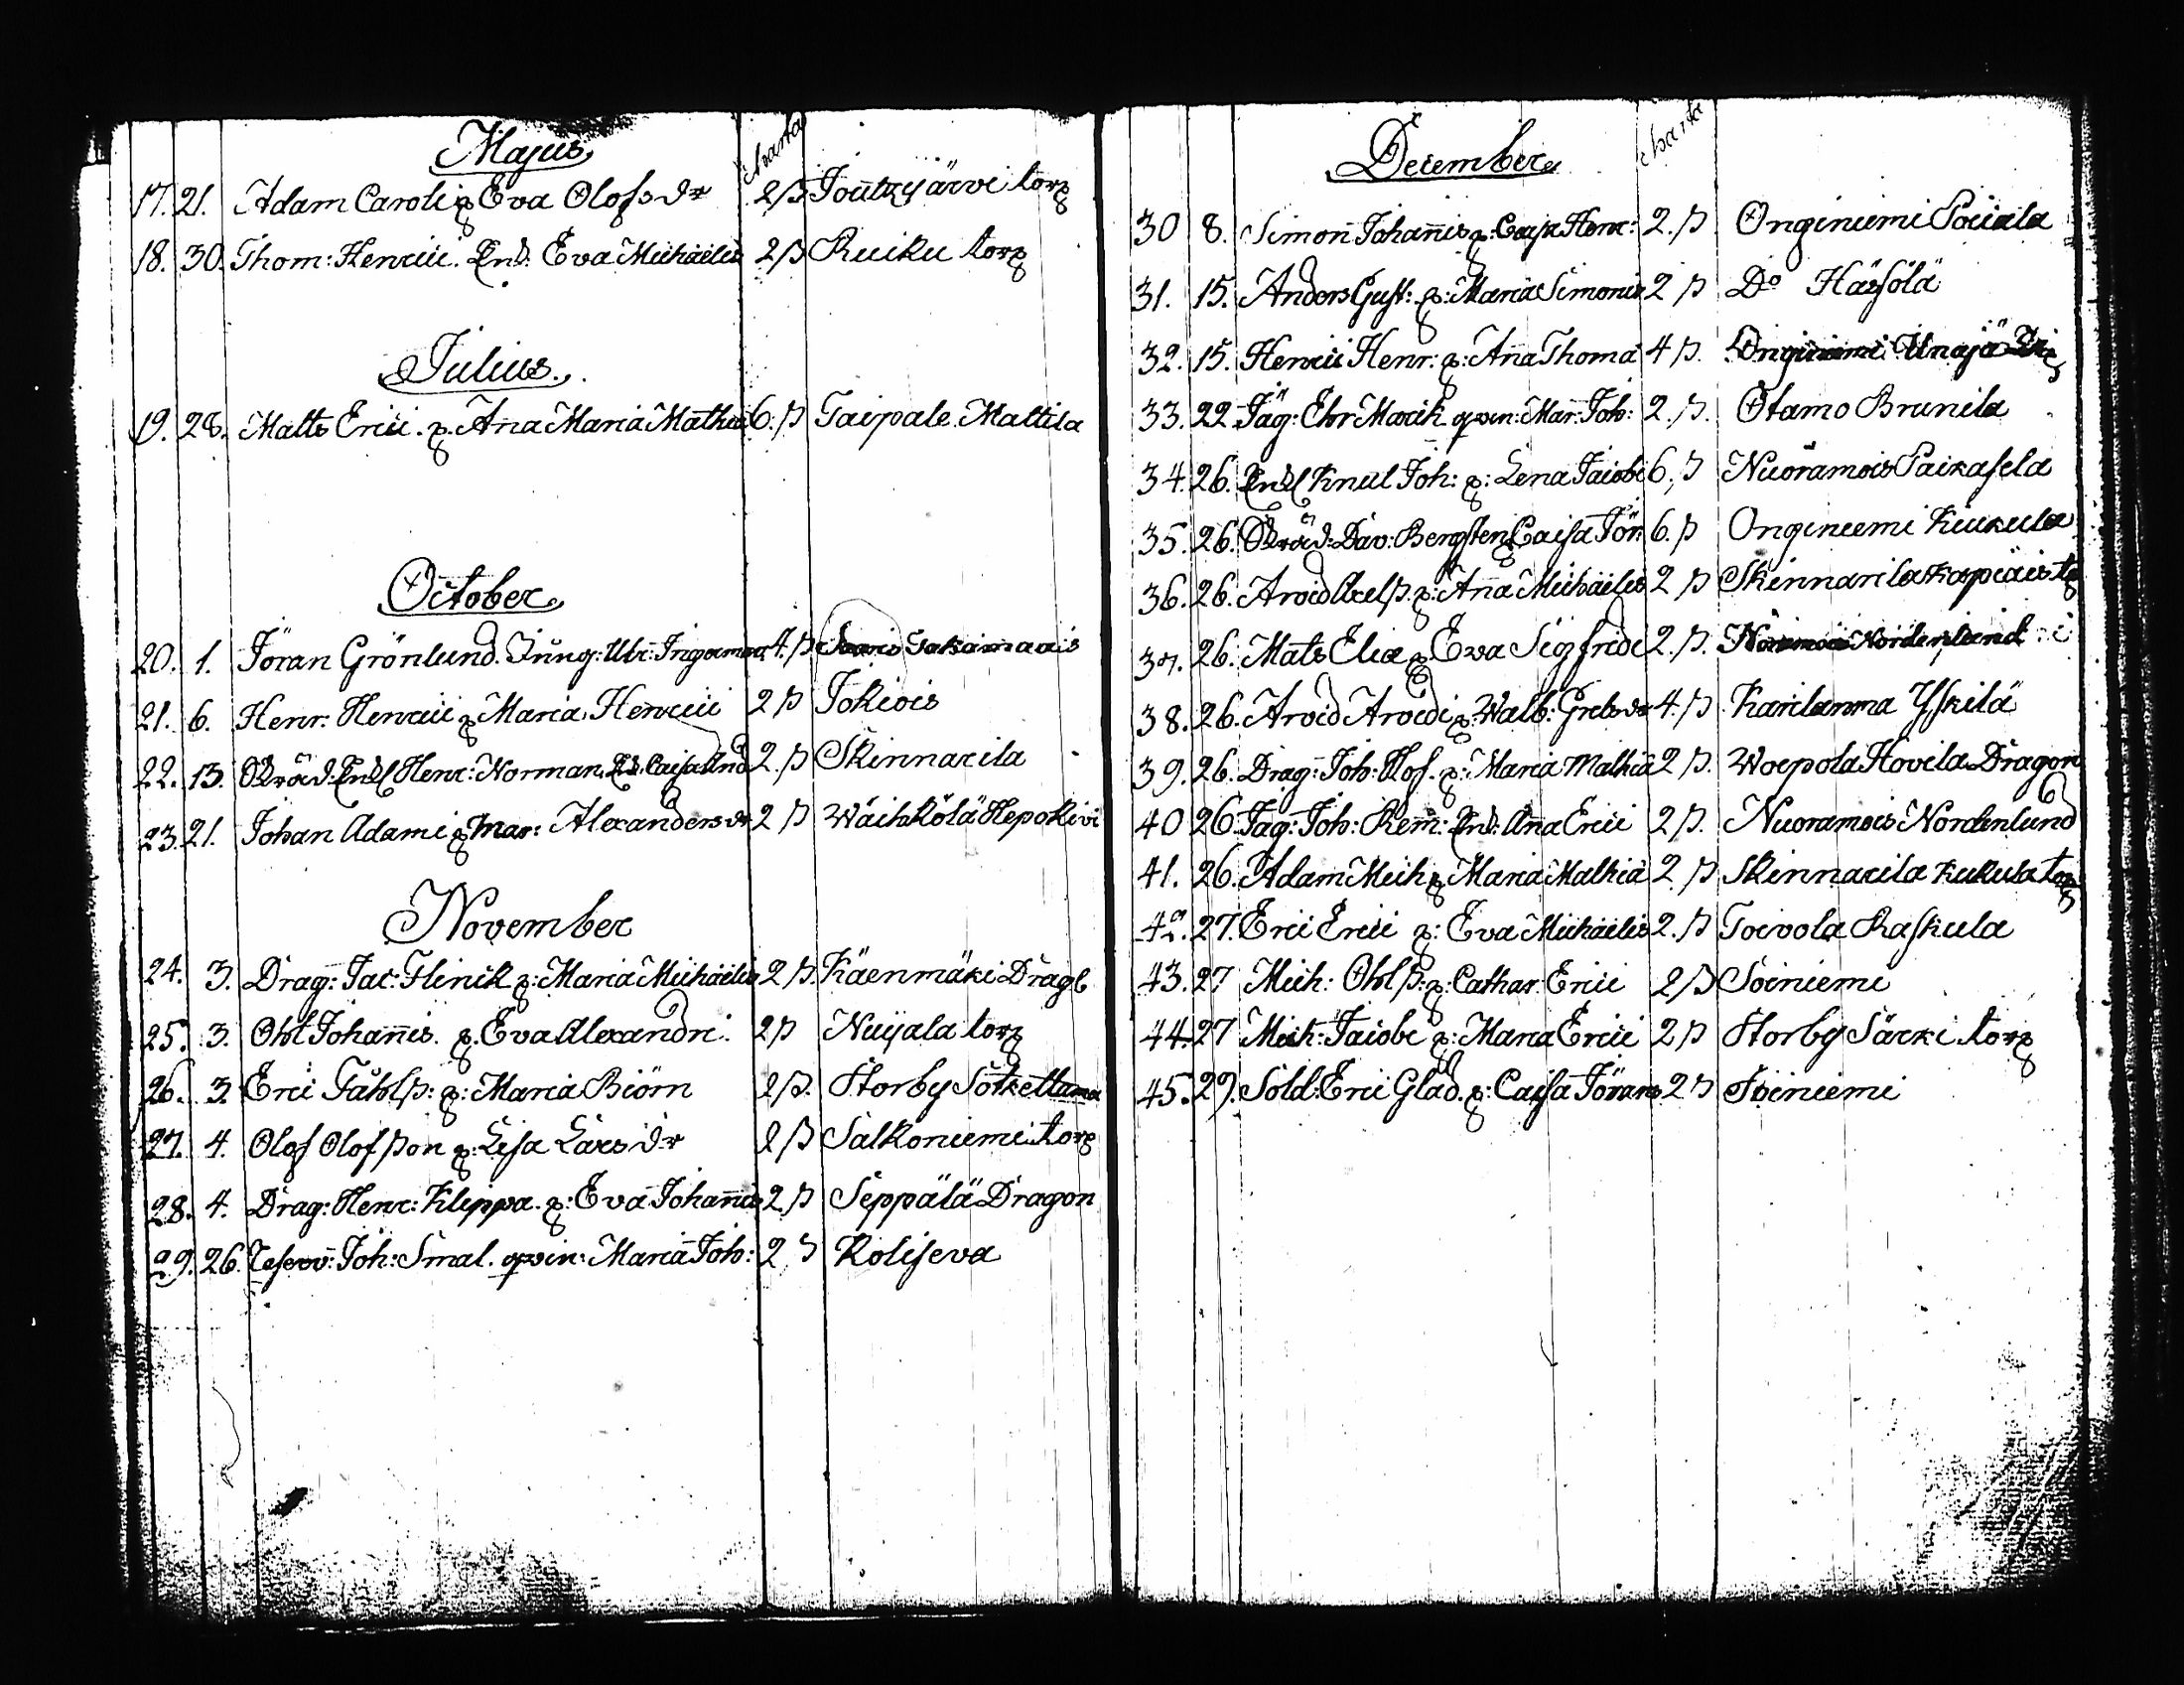 Majus
charta
17. 21. Adam Caroli p: Eva Olofs dr 2 ß Joutzjärvi torp
18. 30. Thom: Henrici. Enk: Eva Michaëlis 2 ß Ruiku torp
Julius.
19. 28. Matts Erici. p: Aña Maria Mathiæ 6. ß Taipale Mattila
October
20. 1. Jöran Grönlund. Jung: Ulr: Ingeman 4. ß Jakaimaais
21. 6. Henr: Henrici p: Maria Henrici 2 ß Jokiois
22. 13. Skräd. Enkl Henr: Norman, Caisa And 2. ß Skinnarila
23. 21. Johan Adami p: Mar: Alexanders dr 2 ß Wäihkölä Hepokivi
November
24. 3. Drag: Jac: Flinck p: Maria Michaëlis 2 ß. Käenmäki Drag
25. 3. Ohl Johañis. p: Eva Alexandri. 2 ß Nuijala torp
26. 3. Eric Fåhlß: p: Maria Biörn 2 ß. Storby Sotkettama
27. 4. Olof Olofßon p: Lisa Lars dr 2 ß Salkoniemi torp
28. 4. Drag: Henr: Klippa. p: Eva Johañis 2 ß Seppälä Dragon
29. 26. Joh: Smal. qvin: Maria Joh: 2 ß Koliseva
December
charta
30 8. Simon Johañis p: Caisa Henr: 2. ß Onginiemi Sociala
31. 15. Anders Gust: p: Maria Simonis 2 ß Do Hässölä
32. 15. Henric Henr: p: Aña Thomæ 4 ß. Onginiemi Unajä
33. 22. Jäg: Ehr Maxik qvin: Mar: Joh: 2. ß. Otamo Brunila
34. 26. Enkl Knut Joh: p: Lena Jacobi 6. ß Nuoramois Paikasela
35. 26. Skräd: Dav: Bergsten p: Caisa Jör: 6. ß Onginiemi Kiukula
36. 26. Arvid Axelß. p: Aña Michaëlis 2 ß Skinnarila Kapiäis tp
37. 26. Mats Eliæ p: Eva Sigfridi 2. ß. Nordenlund
38. 26. Arvid Arvidi p: Walb: Grels dr 4. ß Karilanma Yskilä
39. 26. Drag: Joh: Hof. p: Maria Mathiæ 2 ß. Woipola Hovila Dragon
40 26. Jäg: Joh: Rem: Enk: Aña Erici 2 ß. Nuoramois Nordenlund
41. 26. Adam Mich p: Maria Mathiæ 2 ß Skinnarila Kukula torp
42. 27. Eric Erici p: Eva Michaëlis 2. ß Toivola Raskula
43. 27 Mich: Ohlß: p: Cathar: Erici 2 ß Soiniemi
44. 27 Mich: Jacobi p: Maria Erici 2 ß Storby Särki torp
45. 29. Sold: Eric Glad. p: Caisa Jörans 2 ß Soiniemi